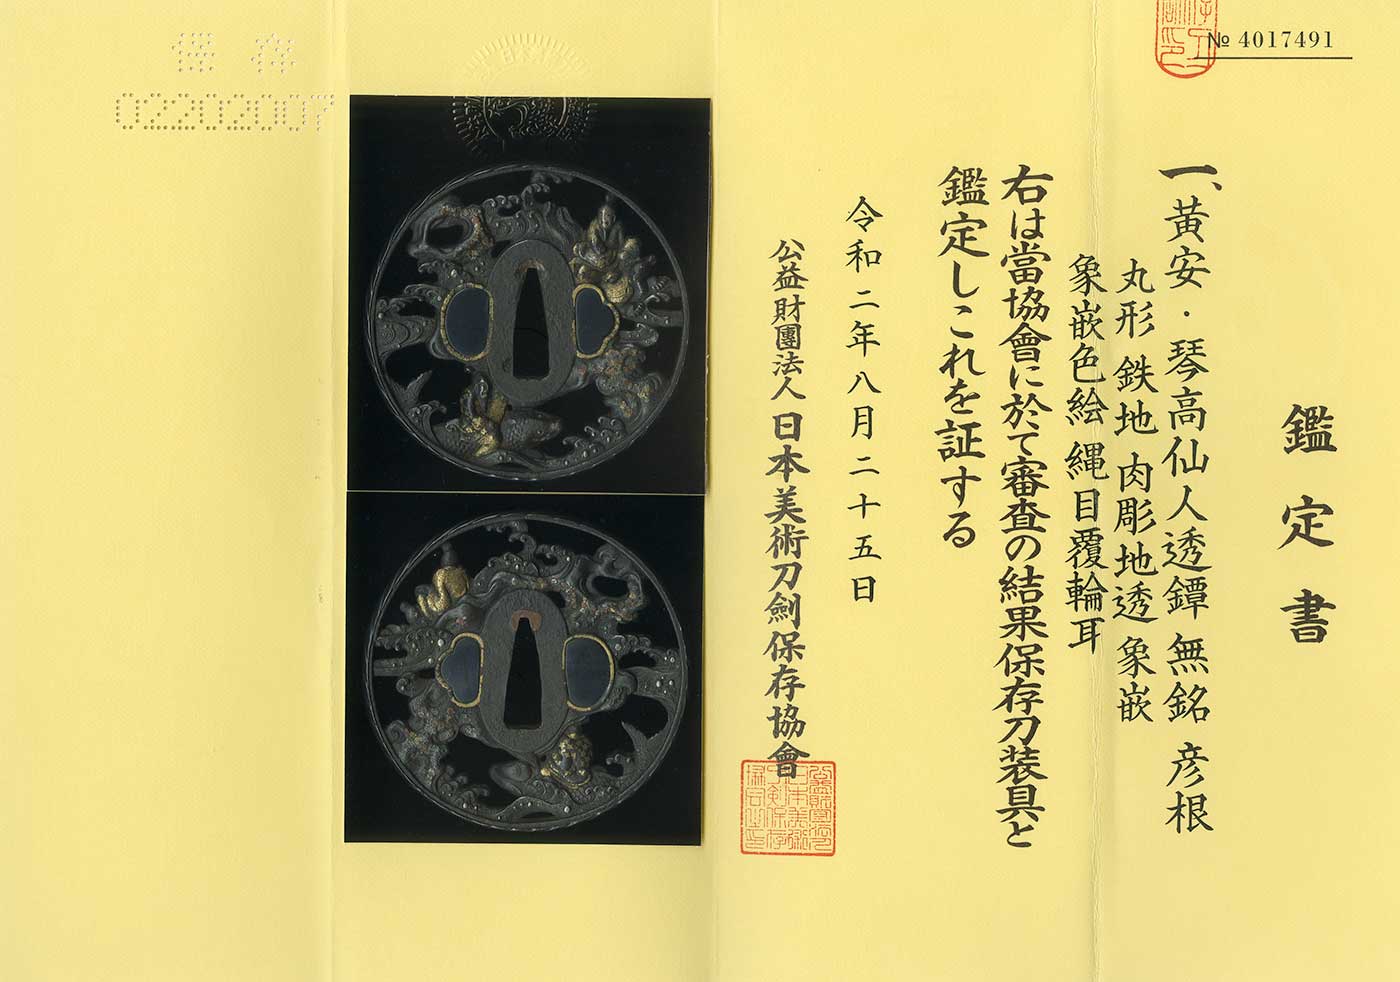 № 4017491
鑑定書
一、黄安・琴高仙人透鐔 無銘 彦根
丸形 鉄地 肉彫地透 象嵌
象嵌色絵 縄目覆輪耳
右は當協會に於て審査の結果保存刀装具と
鑑定しこれを証する
令和二年八月二十五日
公益財團法人 日本美術刀劍保存協會
保存
02202007